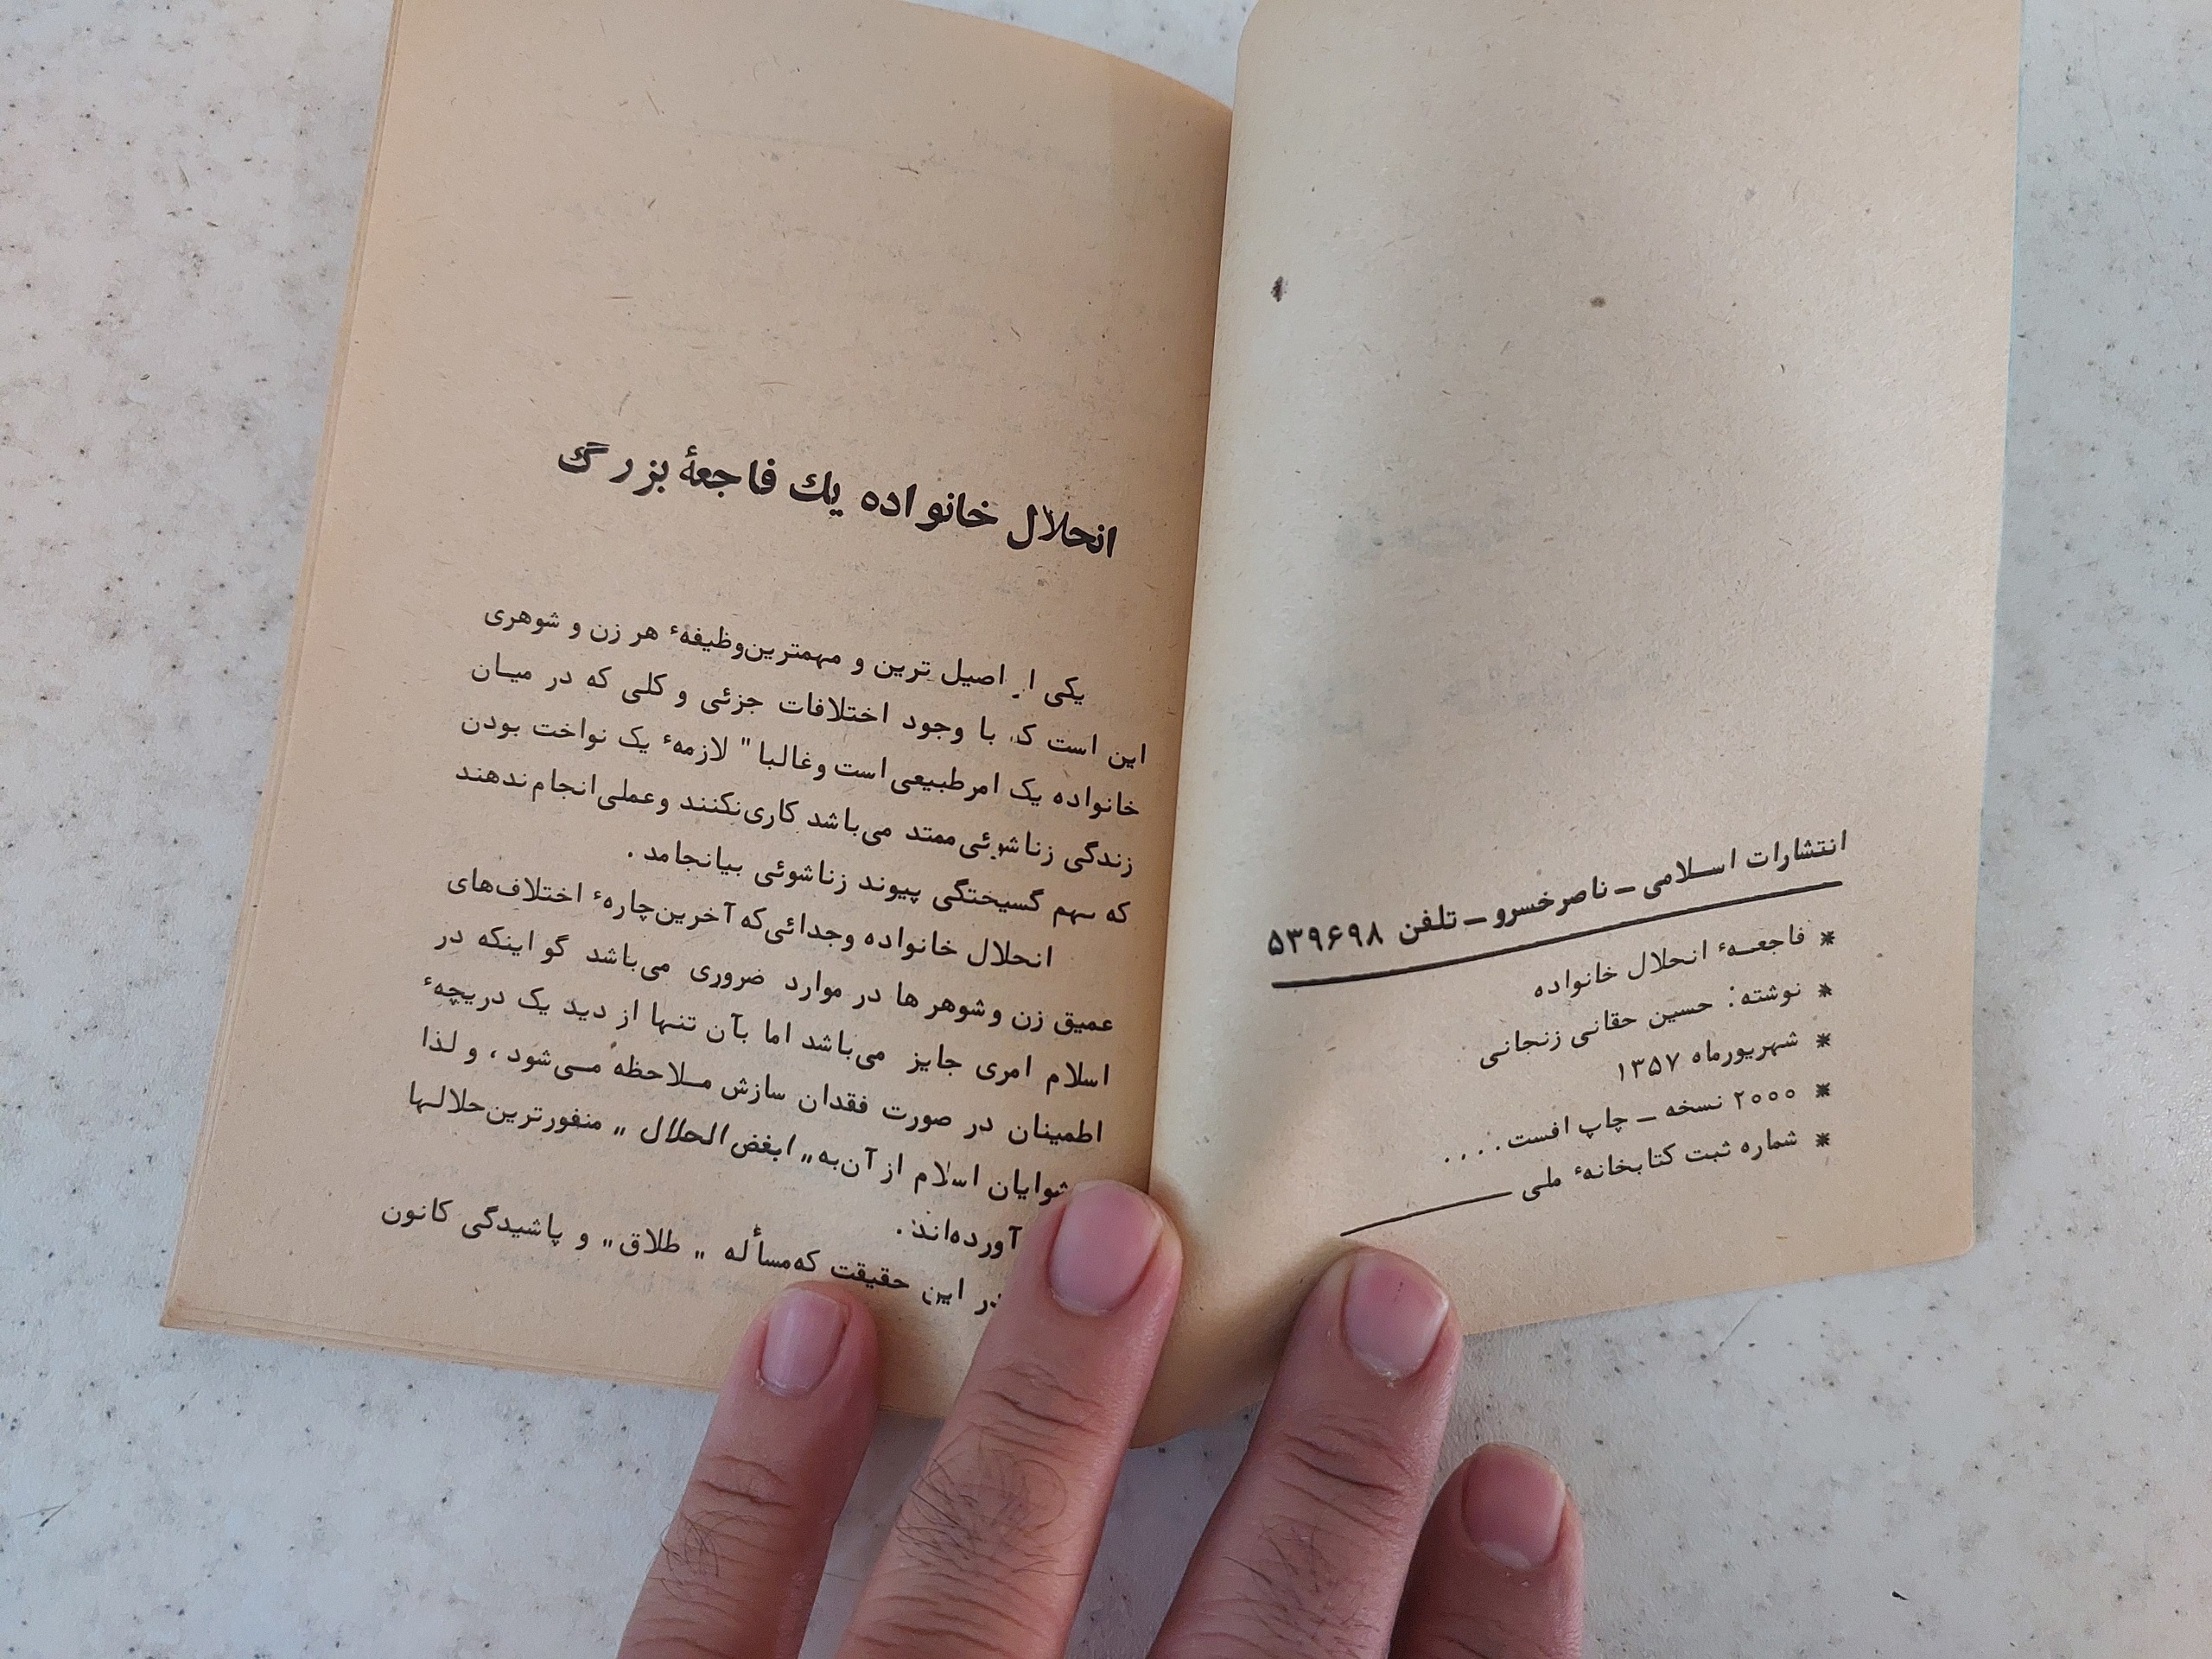 انتشارات اسلامی ـ ناصرخسرو ـ تلفن ۵۳۹۶۹۸
* فاجعهٔ انحلال خانواده
* نوشته: حسین حقانی زنجانی
* شهریورماه ۱۳۵۷
* ۲۰۰۰ نسخه ـ چاپ افست....
* شماره ثبت کتابخانهٔ ملی
انحلال خانواده یك فاجعهٔ بزرگ
یکی از اصیل ترین و مهمترین‌وظیفهٔ هر زن و شوهری
این است که با وجود اختلافات جزئی و کلی که در میان
خانواده یک امرطبیعی‌است وغالبا" لازمهٔ یک نواخت بودن
زندگی زناشوئی‌ممتد می‌باشد کاری‌نکنند وعملی‌انجام‌ندهند
که بهم گسیختگی پیوند زناشوئی بیانجامد .
انحلال خانواده وجدائی‌که آخرین‌چارهٔ اختلاف‌های
عمیق زن وشوهر ها در موارد ضروری می‌باشد گو اینکه در
اسلام امری جایز می‌باشد اما بآن تنها از دید یک دریچهٔ
اطمینان در صورت فقدان سازش ملاحظه می‌شود ، و لذا
اسلام از آن‌به „ ابغض‌الحلال „ منفورترین‌حلالها
آورده‌اند .
این حقیقت که‌مسأله „ طلاق „ و پاشیدگی کانون